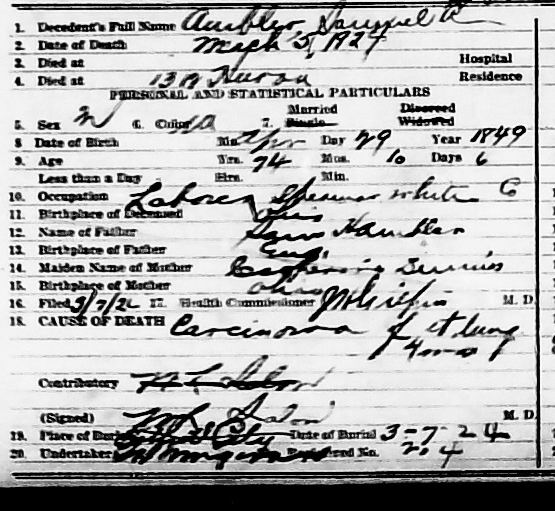 1. Decedent's Full Name Ambler, Samuel R
2. Date of Death March 5, 1924
3. Died at Hospital
4. Died at 13 Huron Residence
PERSONAL AND STATISTICAL PARTICULARS
Married Divorced
5. Sex M 6. Color 7. Single Widowed
8 Date of Birth Mo. Apr Day 29 Year 1849
9. Age Yrs. 74 Mos. 10 Days 6
Less than a Day Hrs. Min.
10. Occupation Laborer Spencer White Co
11. Birthplace of Deceased Ohio
12. Name of Father Hambler
13. Birthplace of Father Eng.
14. Maiden Name of Mother Catherine
15. Birthplace of Mother Ohio
16. Filed 3/7/24 17. Health Commissioner M. D.
18. CAUSE OF DEATH Carcinoma of rt lung
4 mos
Contributory
(Signed) M. D.
19. Place of Burial City Date of Burial 3-7-24
20. Undertaker Registered No. 24